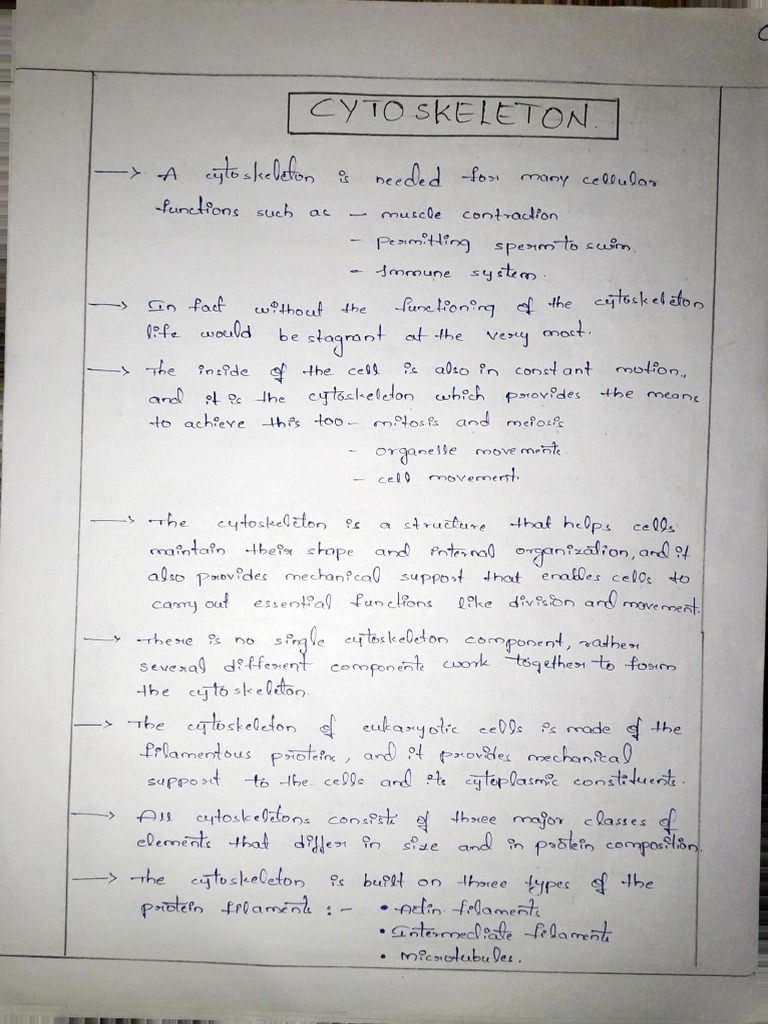 CYTOSKELETON.
→ A cytoskeleton is needed for many cellular
functions such as – muscle contraction
– permitting sperm to swim.
– Immune system.
→ In fact without the functioning of the cytoskeleton
life would be stagnant at the very most.
→ The inside of the cell is also in constant motion,
and it is the cytoskeleton which provides the means
to achieve this too – mitosis and meiosis
– organelle movements.
– cell movement.
→ The cytoskeleton is a structure that helps cells
maintain their shape and internal organization, and it
also provides mechanical support that enables cells to
carry out essential functions like division and movement.
→ There is no single cytoskeleton component, rather
several different components work together to form
the cytoskeleton.
→ The cytoskeleton of eukaryotic cells is made of the
filamentous proteins, and it provides mechanical
support to the cells and its cytoplasmic constituents.
→ All cytoskeletons consists of three major classes of
elements that differ in size and in protein composition.
→ The cytoskeleton is built on three types of the
protein filaments :– • Actin filaments
• Intermediate filaments
• Microtubules.